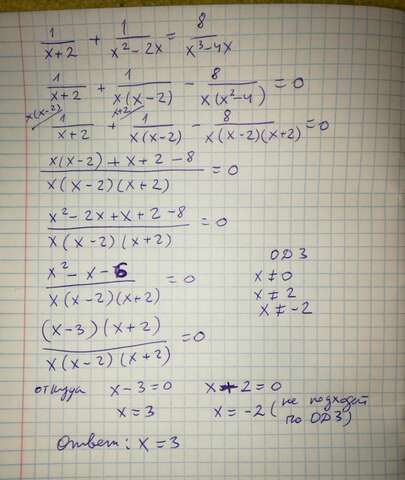 1/(x+2) + 1/(x²-2x) = 8/(x³-4x)
1/(x+2) + 1/(x(x-2)) - 8/(x(x²-4)) = 0
x(x-2)/ 1/(x+2) + x+2/ 1/(x(x-2)) - 8/(x(x-2)(x+2)) = 0
(x(x-2)+x+2-8)/(x(x-2)(x+2)) = 0
(x²-2x+x+2-8)/(x(x-2)(x+2)) = 0
ОДЗ
x≠0
x≠2
x≠-2
(x²-x-6)/(x(x-2)(x+2)) = 0
((x-3)(x+2))/(x(x-2)(x+2)) = 0
откуда x-3=0 x+2=0
x=3 x=-2 (не подходит по ОДЗ)
Ответ: x=3